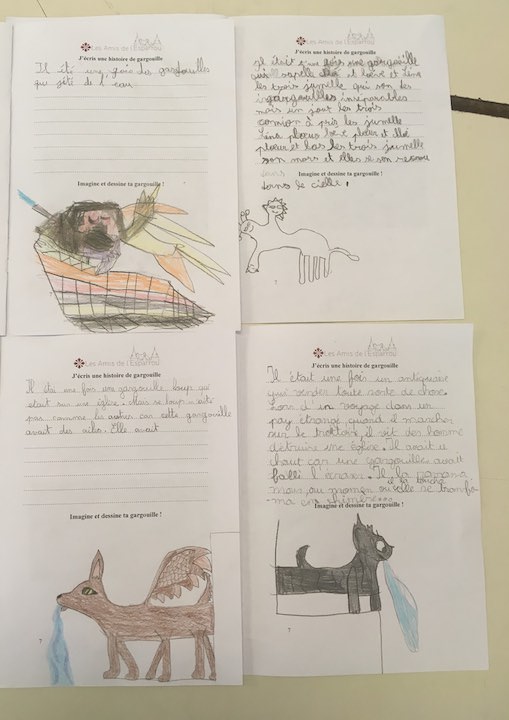 Les Amis de l'Esparrou
J'écris une histoire de gargouille
Il été une fois des gargouilles
qui jète de l'eau
Imagine et dessine ta gargouille !
7
Les Amis de l'Esparrou
J'écris une histoire de gargouille
Il était une fois une gargouille
et Léna
les trois jumelle qui son des
gargouilles inséparables
mais un jour les trois
comion à pris les jumelle
Léna pleure et
pleure et les trois jumelle
son mors et elles se son
Imagine et dessine ta gargouille !
dans le cielle
7
Les Amis de l'Esparrou
J'écris une histoire de gargouille
Il éta une fois une gargouille loup qui
était sur une église. Mais se loup n'été
pas comme les autres car cette gargouille
avait des ailes. Elle avait
Imagine et dessine ta gargouille !
7
Les Amis de l'Esparrou
J'écris une histoire de gargouille
Il était une fois un antiquaire
que vender toute sorte de chose.
Lors d'un voyage dans un
pay étrange quand il marcher
sur le trottoire, il vit des homme
détruire une église. Il avait u
chaut car une gargouille avait
falli l'écraser. Il la
mais au moment ou il la touche elle se transfo
ma en chimère...
Imagine et dessine ta gargouille !
7